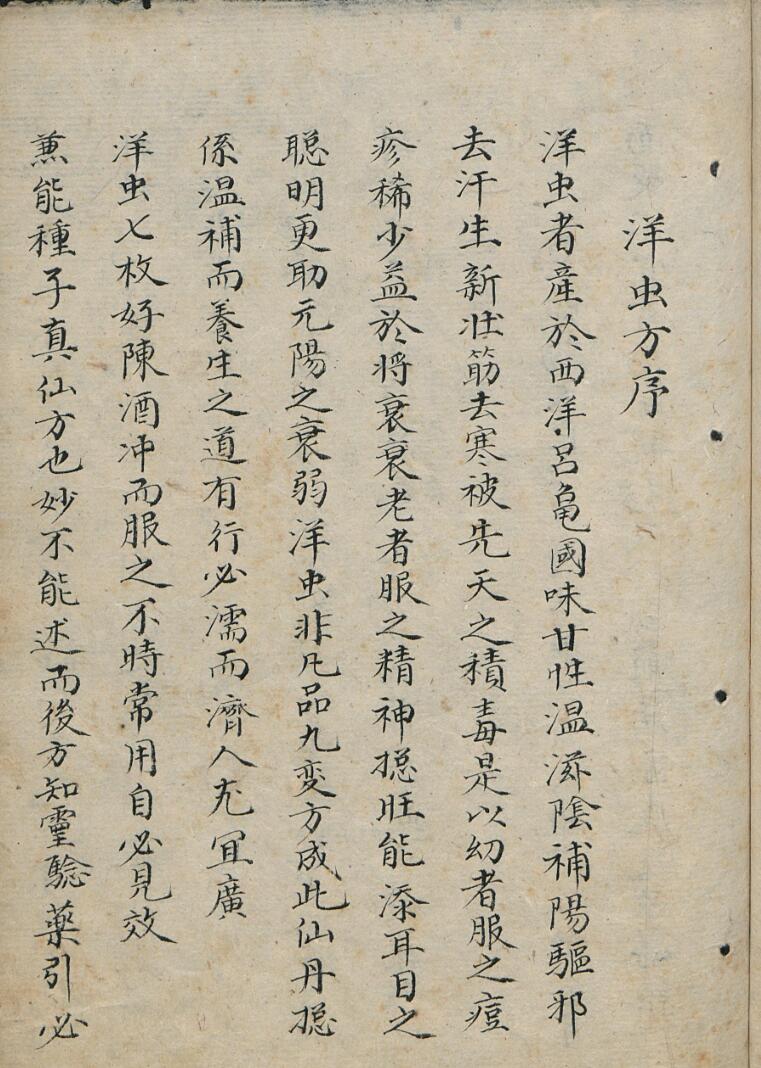 洋虫方序
洋虫者産於西洋呂亀國味甘性温滋陰補陽驅邪
去汗生新壮筋去寒被先天之積毒是以幼者服之痘
疹稀少益於将衰衰老者服之精神捴旺能添耳目之
聡明更助元陽之衰弱洋虫非凡品九変方成此仙丹捴
係温補而養生之道有行必濡而濟人尤宜廣
洋虫七枚好陳酒冲而服之不時常用自必見效
兼能種子真仙方也妙不能述而後方知靈騐藥引必